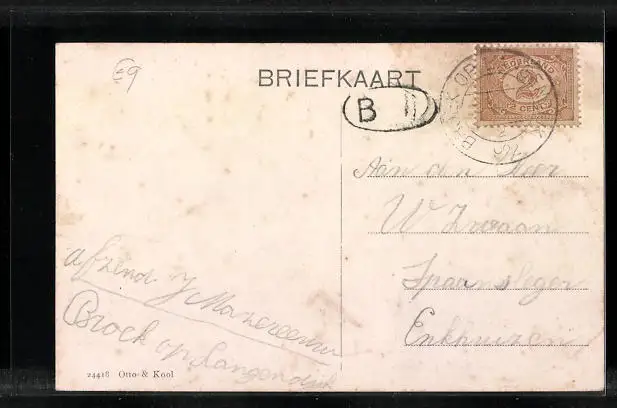 £9
BRIEFKAART
B
NEDERLAND
2½
CENT
BROEK OP
Aan den Heer
W Zwaan
Spaansleger
Enkhuizen
afzend. J
Broek op Langendijk
24418 Otto & Kool